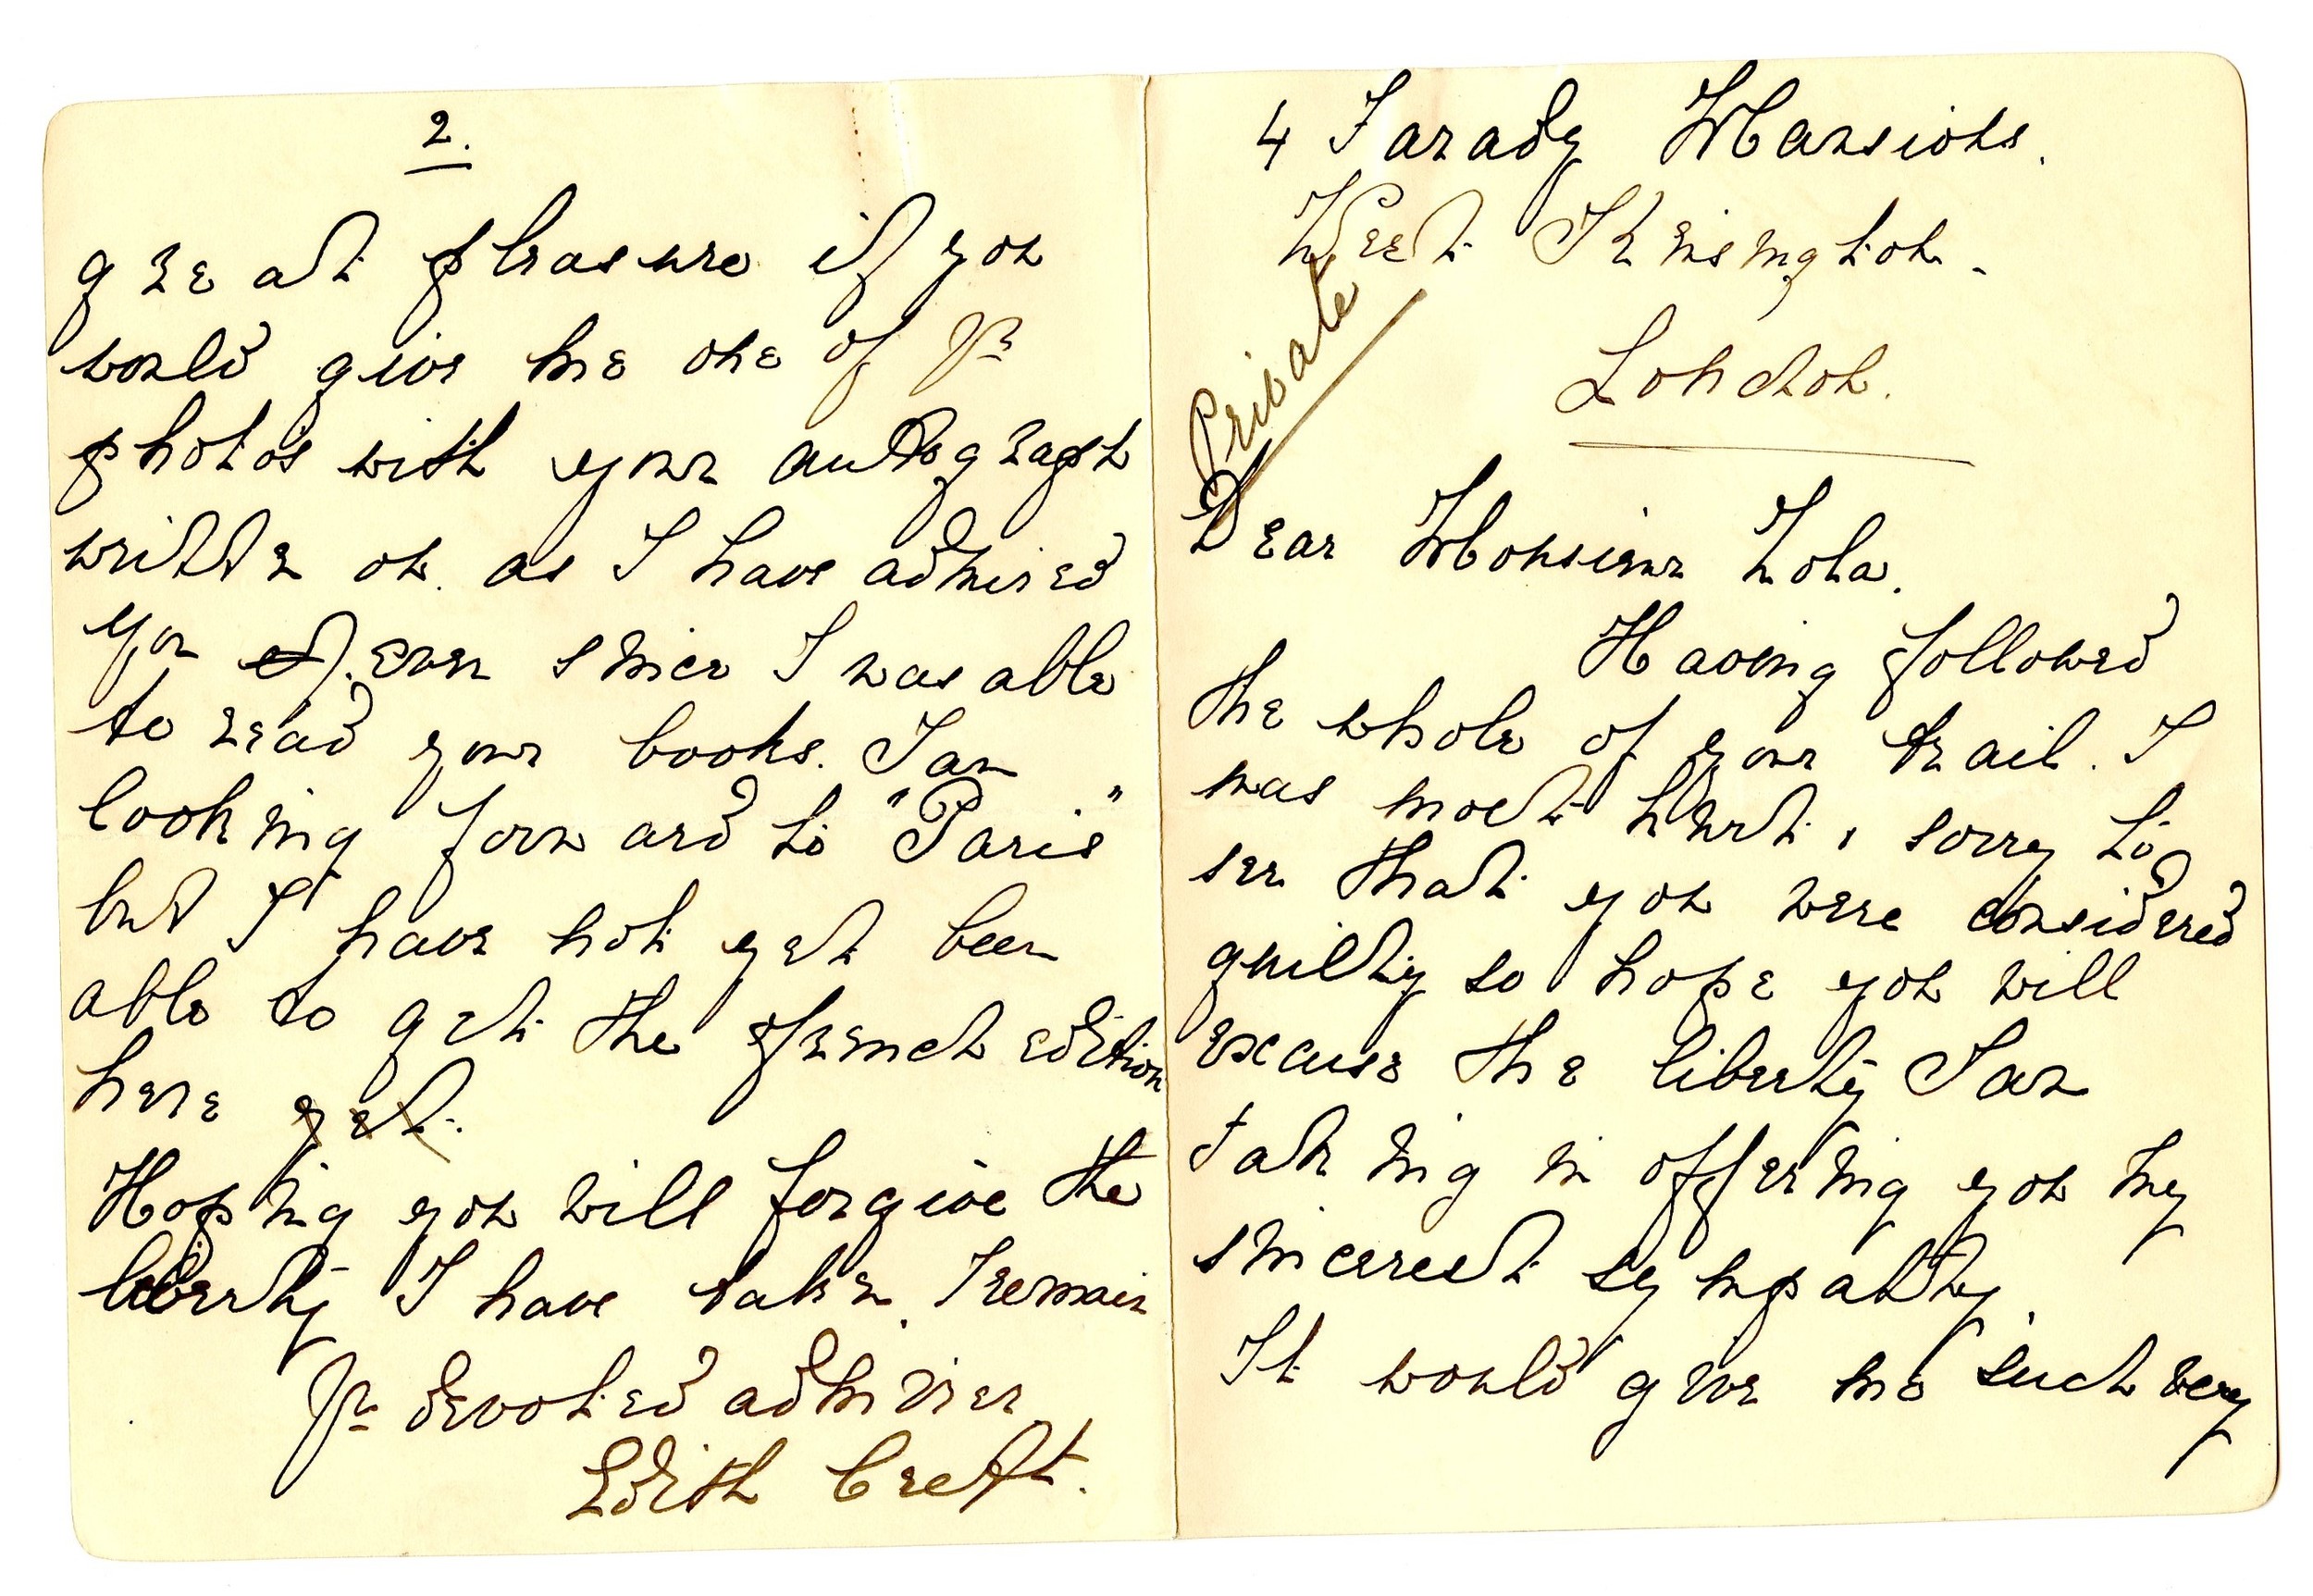 4 Farady Mansions.
West Kensington.
London.
Private
Dear Monsieur Zola.
Having followed
the whole of your trail. I
was most hurt & sorry to
see that you were considered
guilty so hope you will
excuse the liberty I am
taking in offering you my
sincerest sympathy.
It would give me such very
2.
great pleasure if you
would give me one of yr
photos with your autograph
written on. as I have admired
you ever since I was able
to read your books. I am
looking forward to "Paris"
but I have not yet been
able to get the french edition
here yet.
Hoping you will forgive the
liberty I have taken. I remain
yr devoted admirer
Edith Creft.